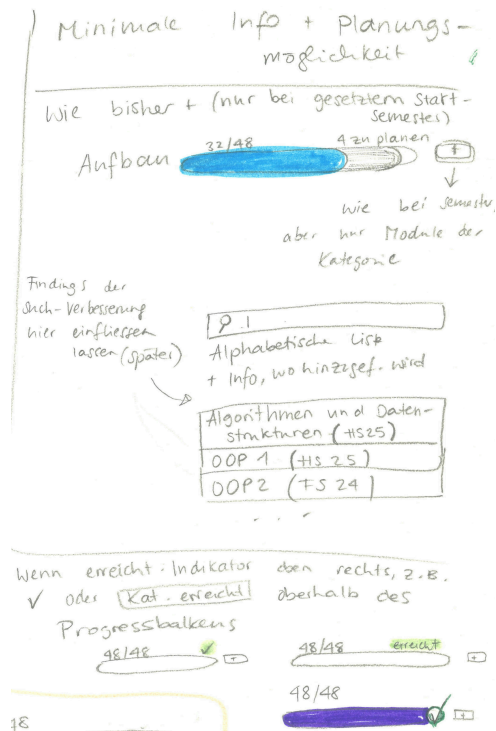 Minimale Info + Planungs-
möglichkeit
Wie bisher + (nur bei gesetztem Start-
semester)
32/48 4 zu planen
Aufbau +
wie bei Semester,
aber nur Module der
Kategorie
Findings der
Such-Verbesserung
hier einfliessen
lassen (später)
Alphabetische Liste
+ Info, wo hinzugef. wird
Algorithmen und Daten-
strukturen (HS25)
OOP 1 (HS 25)
OOP2 (FS 24)
...
Wenn erreicht: Indikator oben rechts, z.B.
✓ oder Kat. erreicht oberhalb des
Progressbalkens
48/48 ✓ +
48/48 erreicht +
48/48
✓ +